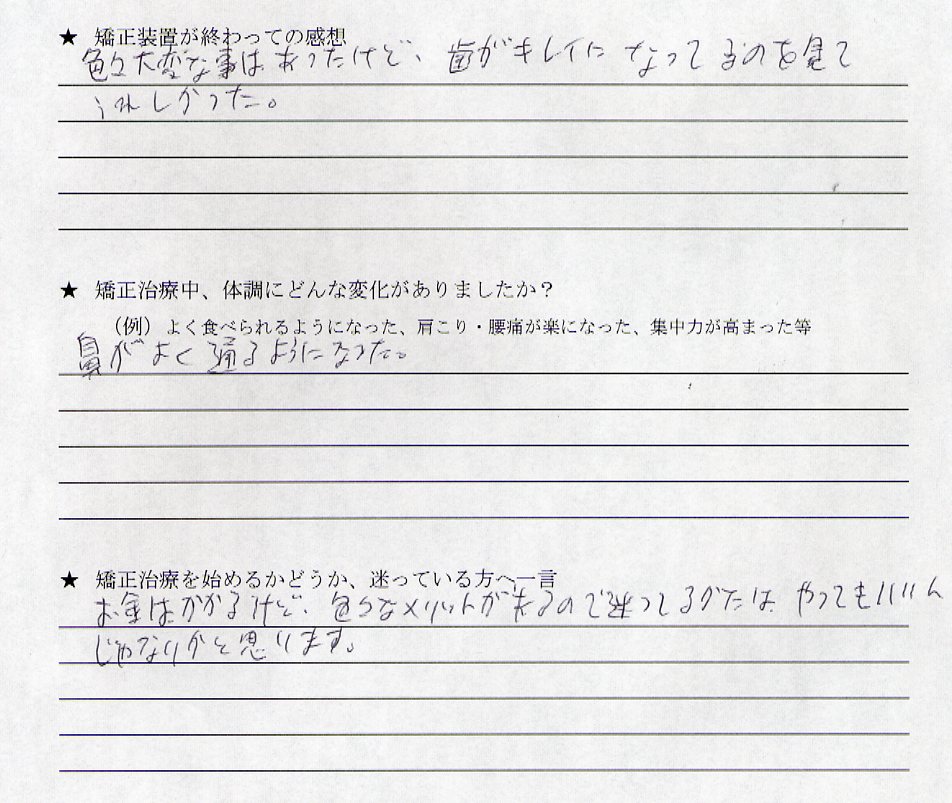 ★ 矯正装置が終わっての感想
色々大変な事はあったけど、歯がキレイになってるのを見て
うれしかった。
★ 矯正治療中、体調にどんな変化がありましたか？
（例）よく食べられるようになった、肩こり・腰痛が楽になった、集中力が高まった等
鼻がよく通るようになった。
★ 矯正治療を始めるかどうか、迷っている方へ一言
お金はかかるけど、色々なメリットがあるので迷ってるかたは やってもいいん
じゃないかと思います。